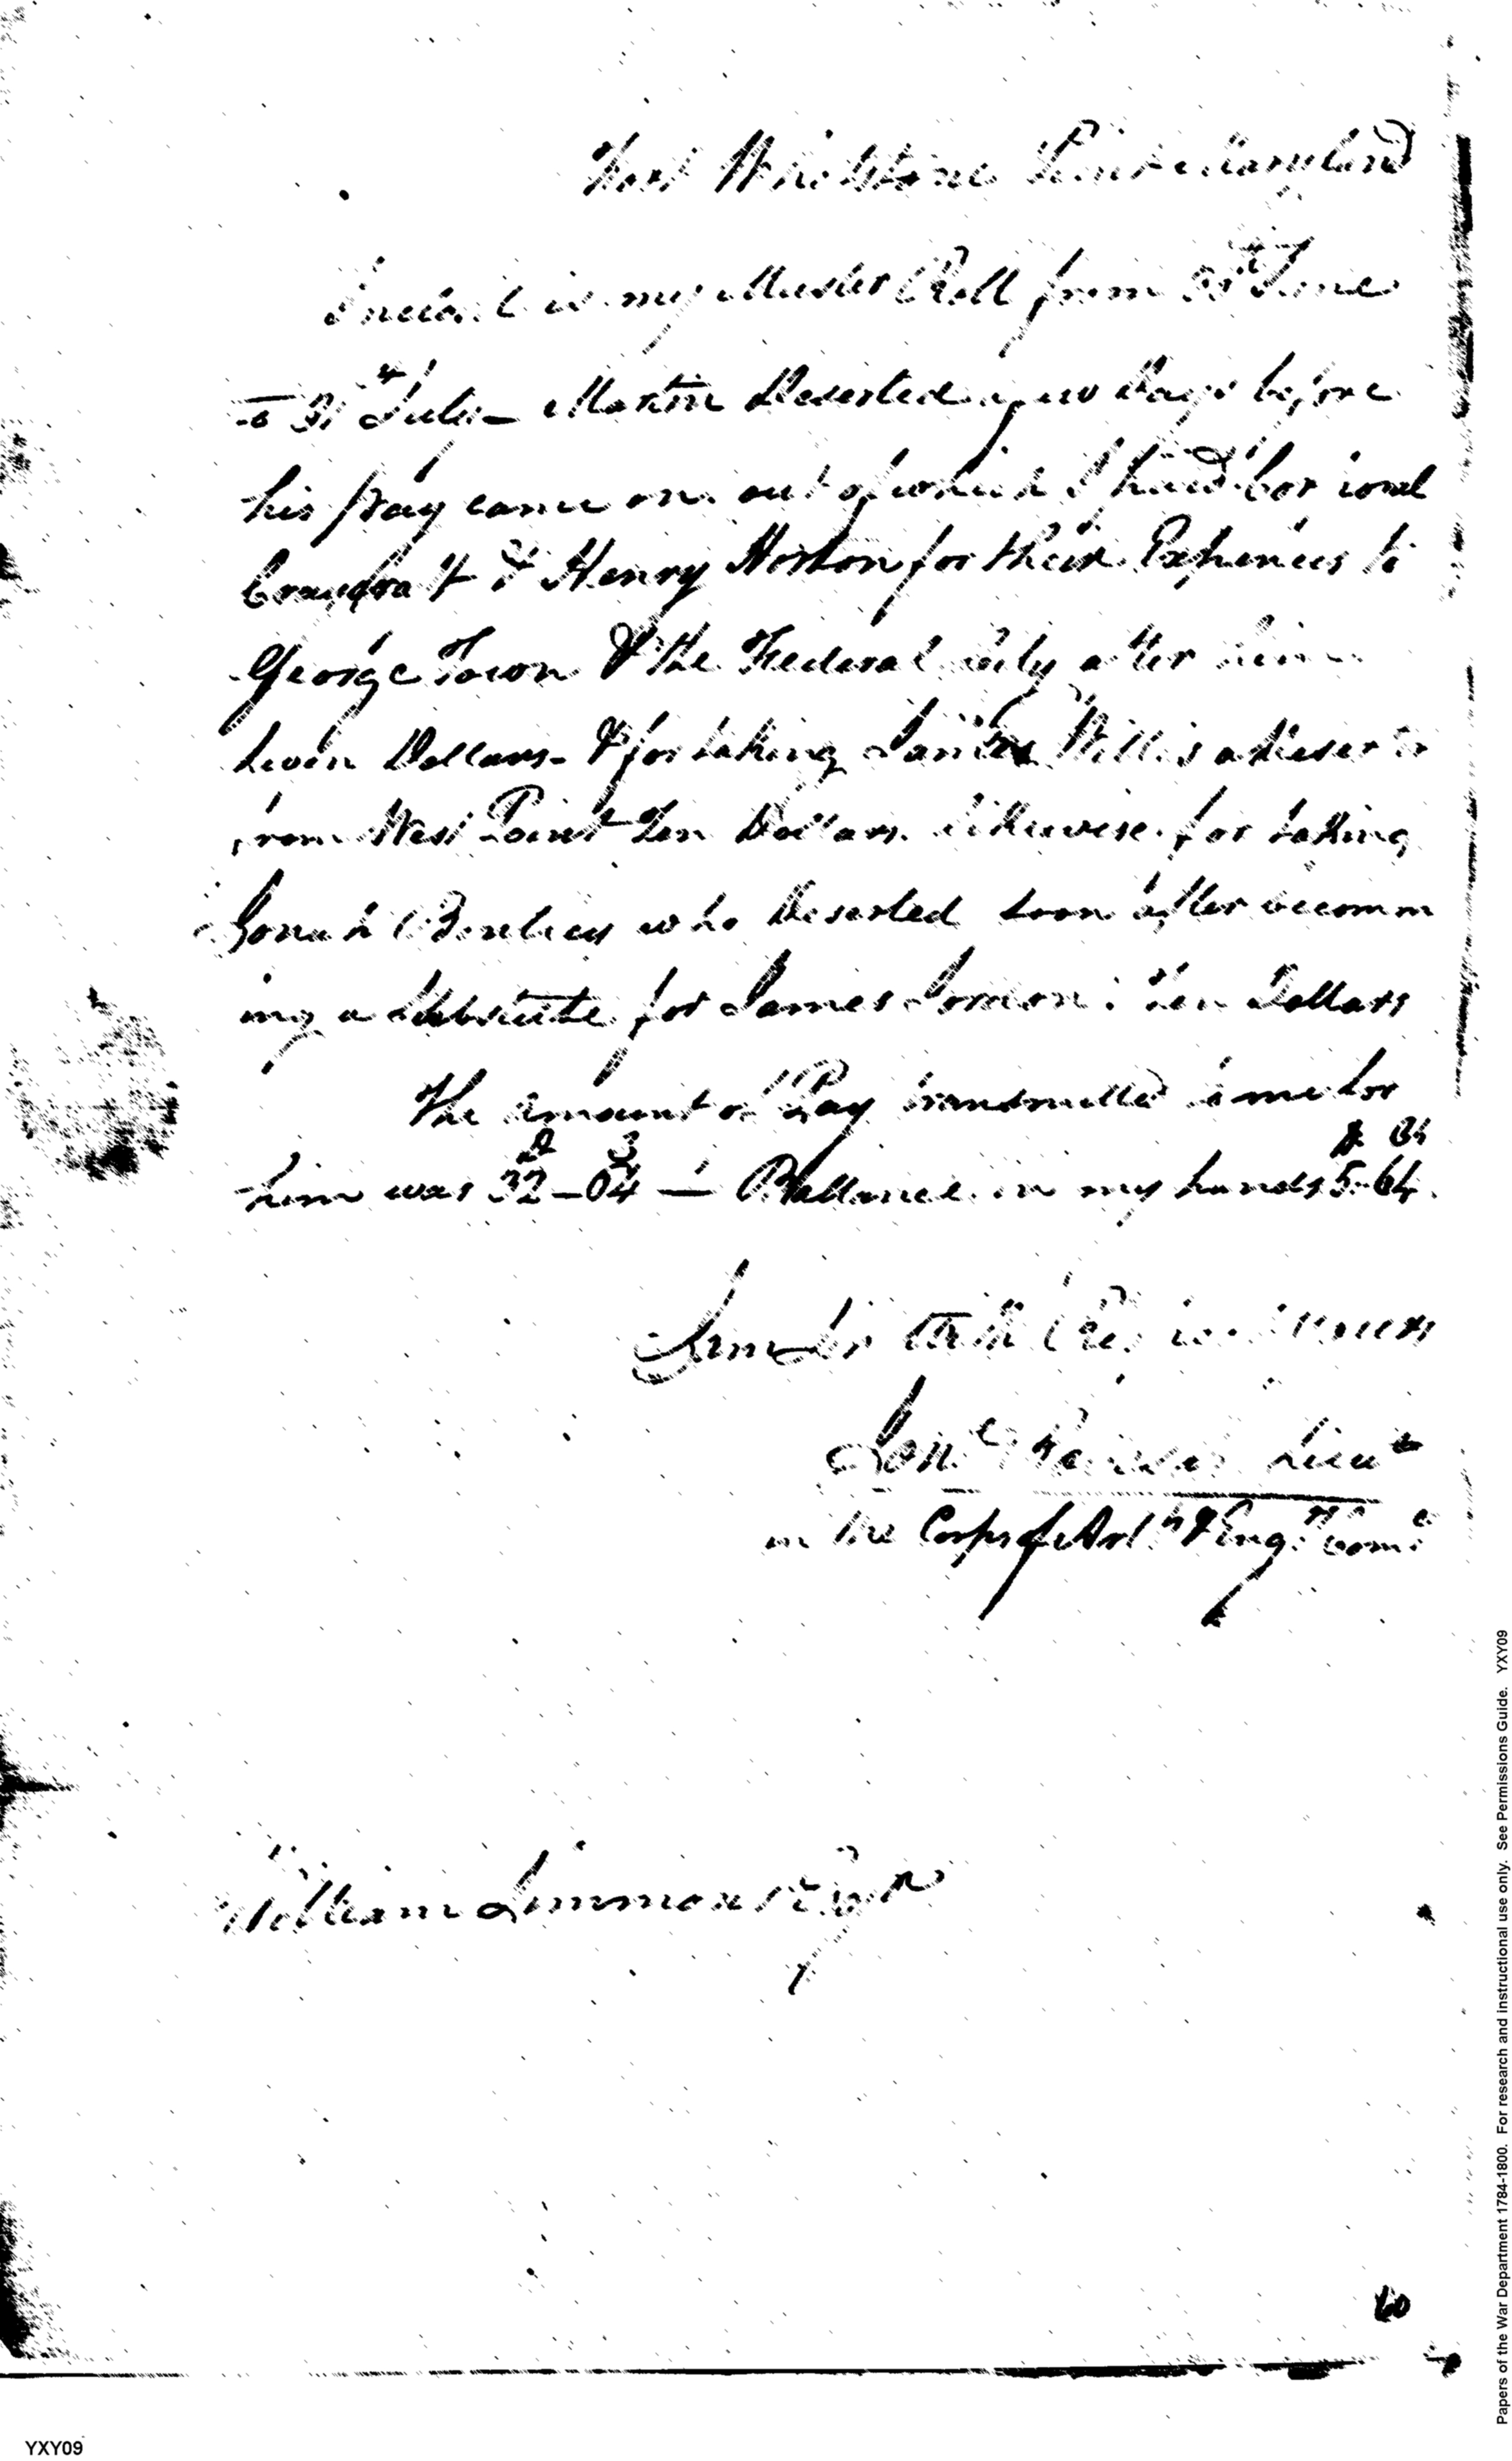 Fort Whetstone Point Maryland
Inclosed is my Muster Roll from 30th June
to 31 July - Martin Deserted a few Days before
his pay came on. out of which I paid Corporal
& Henry Horton for their Expences to
George Town & the Federal City after him
Dollars - & for taking James Willis a deserter
from West Point Ten Dollars. likewise. for taking
Jonah Bentley who Deserted soon after becomm
ing a Substitute for James : Ten Dollars
The amount of Pay transmitted to me for
him was 32-04 — Ballance in my hands 5-64.
I am Sir with
Lieut
in the Corps of Arty & Engrs Comg
William Simmons Esqr
60
YXY09
Papers of the War Department 1784-1800. For research and instructional use only. See Permissions Guide. YXY09